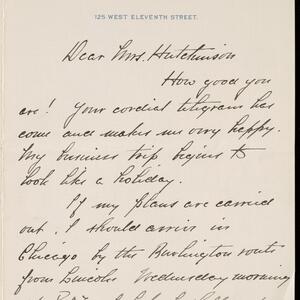 125 WEST ELEVENTH STREET.
Dear Mrs. Hutchinson
How good you
are! Your cordial telegram has
come and makes me very happy.
My business trip begins to
look like a holiday.
If my plans are carried
out, I should arrive in
Chicago by the Burlington route
from Lincoln Wednesday morning